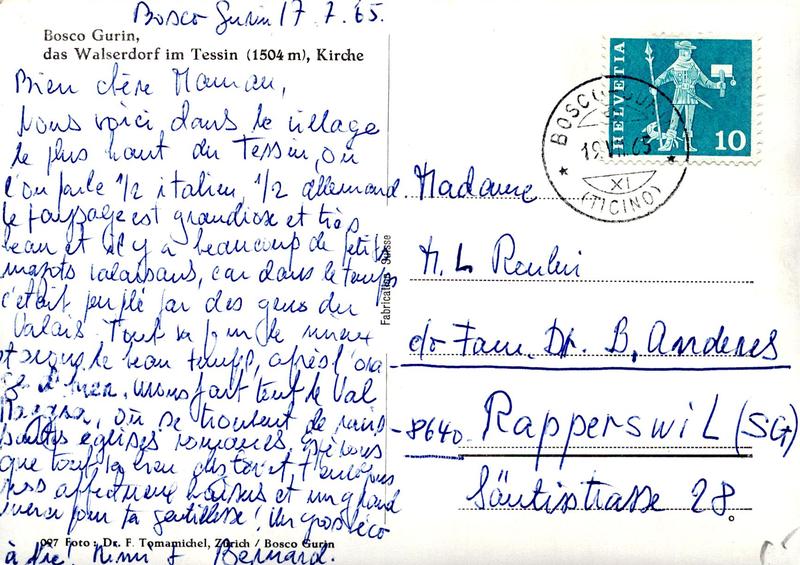 Bosco Gurin 17. 7. 65.
Bosco Gurin,
das Walserdorf im Tessin (1504 m), Kirche
Bien chère Maman,
Nous voici dans le village
le plus haut du Tessin, où
l'on parle 1/2 italien, 1/2 allemand.
Le paysage est grandiose et très
beau et il y a beaucoup de petits
mazots valaisans, car dans le temps
c'était peuplé par des gens du
Valais. Tout va pour le mieux
le beau temps, après l'ora-
ge d'hier, nous fait tout le Val
Maggia, où se trouvent de
églises romanes.
que tout va bien
affectueux baisers et un grand
merci pour ta gentillesse! Un gros
à Bernard.
097 Foto: Dr. F. Tomamichel, Zürich / Bosco Gurin
Fabrication Suisse
HELVETIA
10
BOSCO-GURIN
19.VII.65
XI
(TICINO)
Madame
M. L.
c/o Fam. Dr. B. Anderes
8640 Rapperswil (SG)
Säntisstrasse 28.